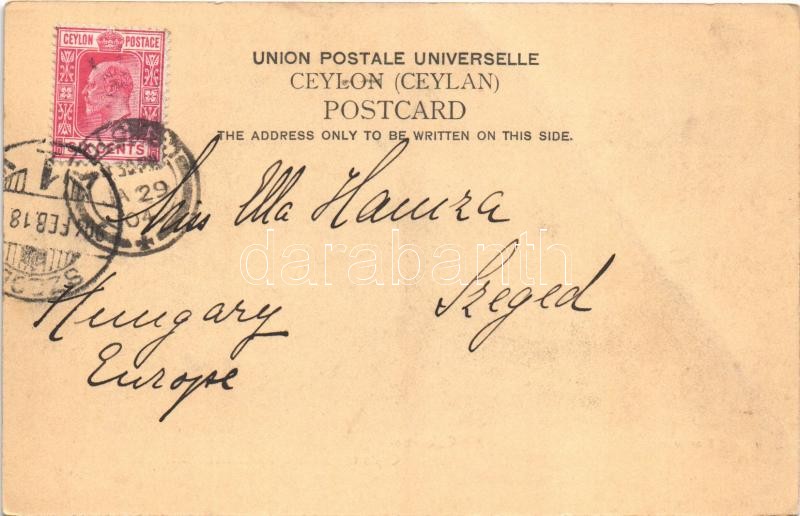 CEYLON POSTAGE
SIX CENTS
UNION POSTALE UNIVERSELLE
CEYLON (CEYLAN)
POSTCARD
THE ADDRESS ONLY TO BE WRITTEN ON THIS SIDE.
29
04
FEB. 18
Miss Ella Hamza
Szeged
Hungary
Europe
darabanth